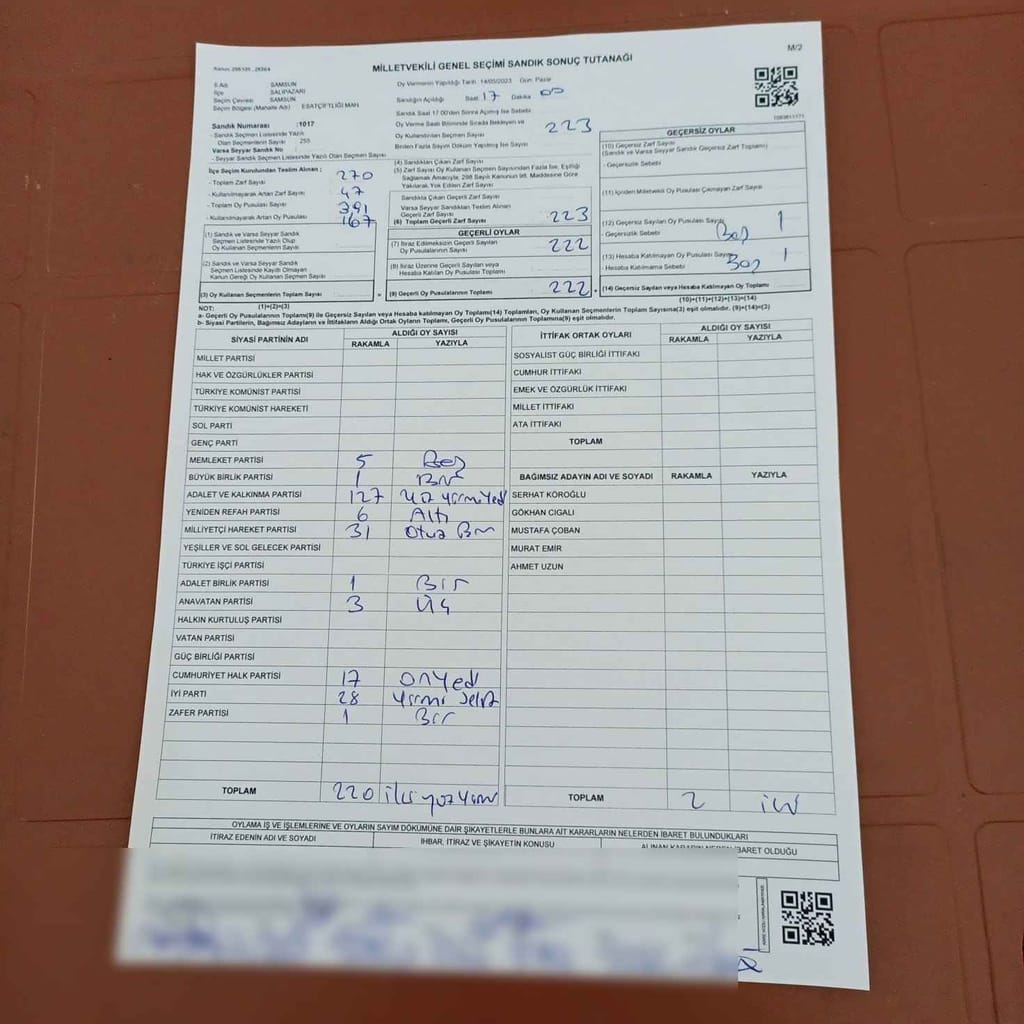 M/2
MİLLETVEKİLİ GENEL SEÇİMİ SANDIK SONUÇ TUTANAĞI
İl Adı SAMSUN
İlçe SALIPAZARI
Seçim Çevresi SAMSUN
Seçim Bölgesi (Mahalle Adı) ESATÇİFTLİĞİ MAH.
Sandık Numarası :1017
- Sandık Seçmen Listesinde Yazılı
Olan Seçmenlerin Sayısı 255
Varsa Seyyar Sandık No :
- Seyyar Sandık Seçmen Listesinde Yazılı Olan Seçmen Sayısı
İlçe Seçim Kurulundan Teslim Alınan ;
- Toplam Zarf Sayısı 270
- Kullanılmayarak Artan Zarf Sayısı 47
- Toplam Oy Pusulası Sayısı 391
- Kullanılmayarak Artan Oy Pusulası 167
(1) Sandık ve Varsa Seyyar Sandık
Seçmen Listesinde Yazılı Olup
Oy Kullanan Seçmenlerin Sayısı
(2) Sandık ve Varsa Seyyar Sandık
Seçmen Listesinde Kayıtlı Olmayan
Kanun Gereği Oy Kullanan Seçmen Sayısı
(3) Oy Kullanan Seçmenlerin Toplam Sayısı
(1)+(2)=(3)
Oy Vermenin Yapıldığı Tarih 14/05/2023 Gün: Pazar
Sandığın Açıldığı Saat 17 Dakika 00
Sandık Saat 17.00'den Sonra Açılmış İse Sebebi
Oy Verme Saati Bitiminde Sırada Bekleyen ve
Oy Kullandırılan Seçmen Sayısı 223
Birden Fazla Sayım Döküm Yapılmış İse Sayısı
(4) Sandıktan Çıkan Zarf Sayısı
(5) Zarf Sayısı Oy Kullanan Seçmen Sayısından Fazla İse, Eşitliği
Sağlamak Amacıyla, 298 Sayılı Kanunun 98. Maddesine Göre
Yakılarak Yok Edilen Zarf Sayısı
Sandıkta Çıkan Geçerli Zarf Sayısı
Varsa Seyyar Sandıktan Teslim Alınan
Geçerli Zarf Sayısı
(6) Toplam Geçerli Zarf Sayısı 223
GEÇERLİ OYLAR
(7) İtiraz Edilmeksizin Geçerli Sayılan
Oy Pusulalarının Sayısı 222
(8) İtiraz Üzerine Geçerli Sayılan veya
Hesaba Katılan Oy Pusulası Toplamı
(9) Geçerli Oy Pusulalarının Toplamı 222
GEÇERSİZ OYLAR
(10) Geçersiz Zarf Sayısı
(Sandık ve Varsa Seyyar Sandık Geçersiz Zarf Toplamı)
- Geçersizlik Sebebi
(11) İçinden Milletvekili Oy Pusulası Çıkmayan Zarf Sayısı
(12) Geçersiz Sayılan Oy Pusulası Sayısı 1
- Geçersizlik Sebebi Boş
(13) Hesaba Katılmayan Oy Pusulası Sayısı 1
- Hesaba Katılmama Sebebi Boş
(14) Geçersiz Sayılan veya Hesaba Katılmayan Oy Toplamı
(10)+(11)+(12)+(13)=(14)
NOT:
a- Geçerli Oy Pusulaları Toplamı(9) ile Geçersiz Sayılan veya Hesaba katılmayan Oy Toplamı(14) Toplamları, Oy Kullanan Seçmenlerin Toplam Sayısına(3) eşit olmalıdır. (9)+(14)=(3)
b- Siyasi Partilerin, Bağımsız Adayların ve İttifakların Aldığı Ortak Oyların Toplamı, Geçerli Oy Pusulalarının Toplamına(9) eşit olmalıdır.
SİYASİ PARTİNİN ADI ALDIĞI OY SAYISI
RAKAMLA YAZIYLA
MİLLET PARTİSİ
HAK VE ÖZGÜRLÜKLER PARTİSİ
TÜRKİYE KOMÜNİST PARTİSİ
TÜRKİYE KOMÜNİST HAREKETİ
SOL PARTİ
GENÇ PARTİ
MEMLEKET PARTİSİ 5 Beş
BÜYÜK BİRLİK PARTİSİ 1 Bir
ADALET VE KALKINMA PARTİSİ 127 Yüz Yirmi Yedi
YENİDEN REFAH PARTİSİ 6 Altı
MİLLİYETÇİ HAREKET PARTİSİ 31 Otuz Bir
YEŞİLLER VE SOL GELECEK PARTİSİ
TÜRKİYE İŞÇİ PARTİSİ
ADALET BİRLİK PARTİSİ 1 Bir
ANAVATAN PARTİSİ 3 Üç
HALKIN KURTULUŞ PARTİSİ
VATAN PARTİSİ
GÜÇ BİRLİĞİ PARTİSİ
CUMHURİYET HALK PARTİSİ 17 On Yedi
İYİ PARTİ 28 Yirmi Sekiz
ZAFER PARTİSİ 1 Bir
TOPLAM 220 iki yüz Yirmi
İTTİFAK ORTAK OYLARI ALDIĞI OY SAYISI
RAKAMLA YAZIYLA
SOSYALİST GÜÇ BİRLİĞİ İTTİFAKI
CUMHUR İTTİFAKI
EMEK VE ÖZGÜRLÜK İTTİFAKI
MİLLET İTTİFAKI
ATA İTTİFAKI
TOPLAM
BAĞIMSIZ ADAYIN ADI VE SOYADI RAKAMLA YAZIYLA
SERHAT KÖROĞLU
GÖKHAN CIGALI
MUSTAFA ÇOBAN
MURAT EMİR
AHMET UZUN
TOPLAM 2 iki
OYLAMA İŞ VE İŞLEMLERİNE VE OYLARIN SAYIM DÖKÜMÜNE DAİR ŞİKAYETLERLE BUNLARA AİT KARARLARIN NELERDEN İBARET BULUNDUKLARI
İTİRAZ EDENİN ADI VE SOYADI İHBAR, İTİRAZ VE ŞİKAYETİN KONUSU ALINAN KARARIN NEDEN İBARET OLDUĞU